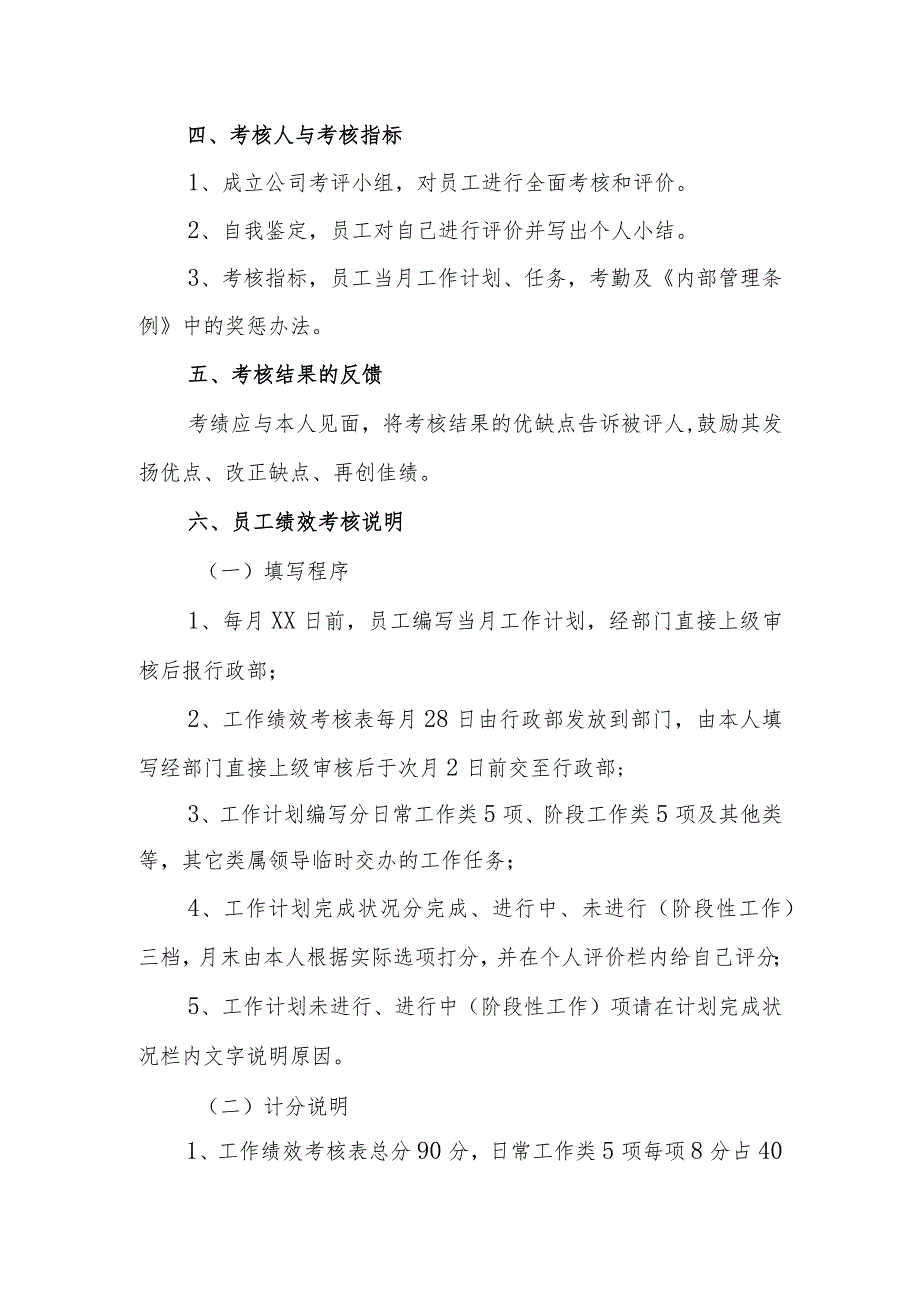 四、考核人与考核指标
1、成立公司考评小组，对员工进行全面考核和评价。
2、自我鉴定，员工对自己进行评价并写出个人小结。
3、考核指标，员工当月工作计划、任务，考勤及《内部管理条
例》中的奖惩办法。
五、考核结果的反馈
考绩应与本人见面，将考核结果的优缺点告诉被评人,鼓励其发
扬优点、改正缺点、再创佳绩。
六、员工绩效考核说明
（一）填写程序
1、每月 XX 日前，员工编写当月工作计划，经部门直接上级审
核后报行政部；
2、工作绩效考核表每月 28 日由行政部发放到部门，由本人填
写经部门直接上级审核后于次月 2 日前交至行政部；
3、工作计划编写分日常工作类 5 项、阶段工作类 5 项及其他类
等，其它类属领导临时交办的工作任务；
4、工作计划完成状况分完成、进行中、未进行（阶段性工作）
三档，月末由本人根据实际选项打分，并在个人评价栏内给自己评分；
5、工作计划未进行、进行中（阶段性工作）项请在计划完成状
况栏内文字说明原因。
（二）计分说明
1、工作绩效考核表总分 90 分，日常工作类 5 项每项 8 分占 40